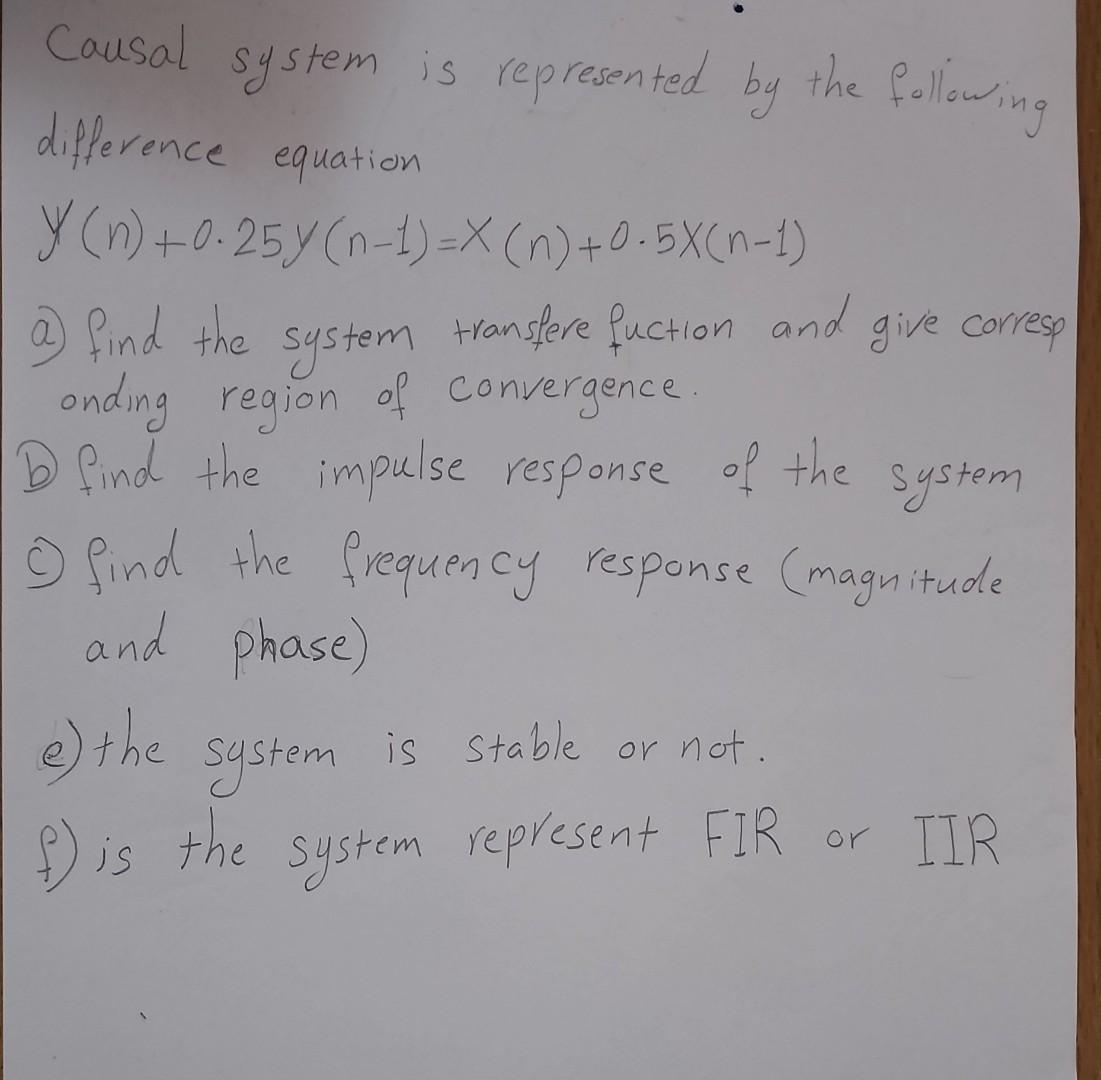 Causal system is represented by the following
difference equation
y(n)+0.25y(n-1)=X(n)+0.5X(n-1)
a) find the system transfere fuction and give corresp
onding region of convergence.
b) find the impulse response of the system
c) find the frequency response (magnitude
and phase)
e) the system is stable or not.
f) is the system represent FIR or IIR